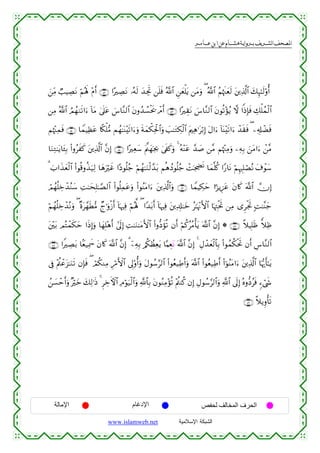 المصحف الشريف برواية هشام عن ابن عامر
أُوْلَٰٓئِكَ ٱلَّذِينَ لَعَنَهُمُ ٱللَّهُ ۖ وَمَن يَلْعَنِ ٱللَّهُ فَلَن تَجِدَ لَهُۥ نَصِيرًا ۝ أَمْ لَهُمْ نَصِيبٌ مِّنَ
ٱلْمُلْكِ فَإِذًا لَّا يُؤْتُونَ ٱلنَّاسَ نَقِيرًا ۝ أَمْ يَحْسُدُونَ ٱلنَّاسَ عَلَىٰ مَآ ءَاتَىٰهُمُ ٱللَّهُ مِن
فَضْلِهِۦ ۖ فَقَدْ ءَاتَيْنَآ ءَالَ إِبْرَٰهِيمَ ٱلْكِتَٰبَ وَٱلْحِكْمَةَ وَءَاتَيْنَٰهُم مُّلْكًا عَظِيمًا ۝ فَمِنْهُم
مَّنْ ءَامَنَ بِهِۦ وَمِنْهُم مَّن صَدَّ عَنْهُ ۚ وَكَفَىٰ بِجَهَنَّمَ سَعِيرًا ۝ إِنَّ ٱلَّذِينَ كَفَرُوا۟ بِـَٔايَٰتِنَا
سَوْفَ نُصْلِيهِمْ نَارًا كُلَّمَا نَضِجَتْ جُلُودُهُم بَدَّلْنَٰهُمْ جُلُودًا غَيْرَهَا لِيَذُوقُوا۟ ٱلْعَذَابَ ۗ
إِنَّ ٱللَّهَ كَانَ عَزِيزًا حَكِيمًا ۝ وَٱلَّذِينَ ءَامَنُوا۟ وَعَمِلُوا۟ ٱلصَّٰلِحَٰتِ سَنُدْخِلُهُمْ
جَنَّٰتٍ تَجْرِى مِن تَحْتِهَا ٱلْأَنْهَٰرُ خَٰلِدِينَ فِيهَآ أَبَدًا ۖ لَّهُمْ فِيهَآ أَزْوَٰجٌ مُّطَهَّرَةٌ ۖ وَنُدْخِلُهُمْ
ظِلًّا ظَلِيلًا ۝ ۞ إِنَّ ٱللَّهَ يَأْمُرُكُمْ أَن تُؤَدُّوا۟ ٱلْأَمَٰنَٰتِ إِلَىٰٓ أَهْلِهَا وَإِذَا حَكَمْتُم بَيْنَ
ٱلنَّاسِ أَن تَحْكُمُوا۟ بِٱلْعَدْلِ ۚ إِنَّ ٱللَّهَ نِعِمَّا يَعِظُكُم بِهِۦٓ ۗ إِنَّ ٱللَّهَ كَانَ سَمِيعًۢا بَصِيرًا ۝
يَٰٓأَيُّهَا ٱلَّذِينَ ءَامَنُوٓا۟ أَطِيعُوا۟ ٱللَّهَ وَأَطِيعُوا۟ ٱلرَّسُولَ وَأُو۟لِى ٱلْأَمْرِ مِنكُمْ ۖ فَإِن تَنَٰزَعْتُمْ فِى
شَىْءٍ فَرُدُّوهُ إِلَى ٱللَّهِ وَٱلرَّسُولِ إِن كُنتُمْ تُؤْمِنُونَ بِٱللَّهِ وَٱلْيَوْمِ ٱلْـَٔاخِرِ ۚ ذَٰلِكَ خَيْرٌ وَأَحْسَنُ
تَأْوِيلًا ۝
الحرف المخالف لحفص الإدغام الإمالة
www.islamweb.net الشبكة الإسلامية